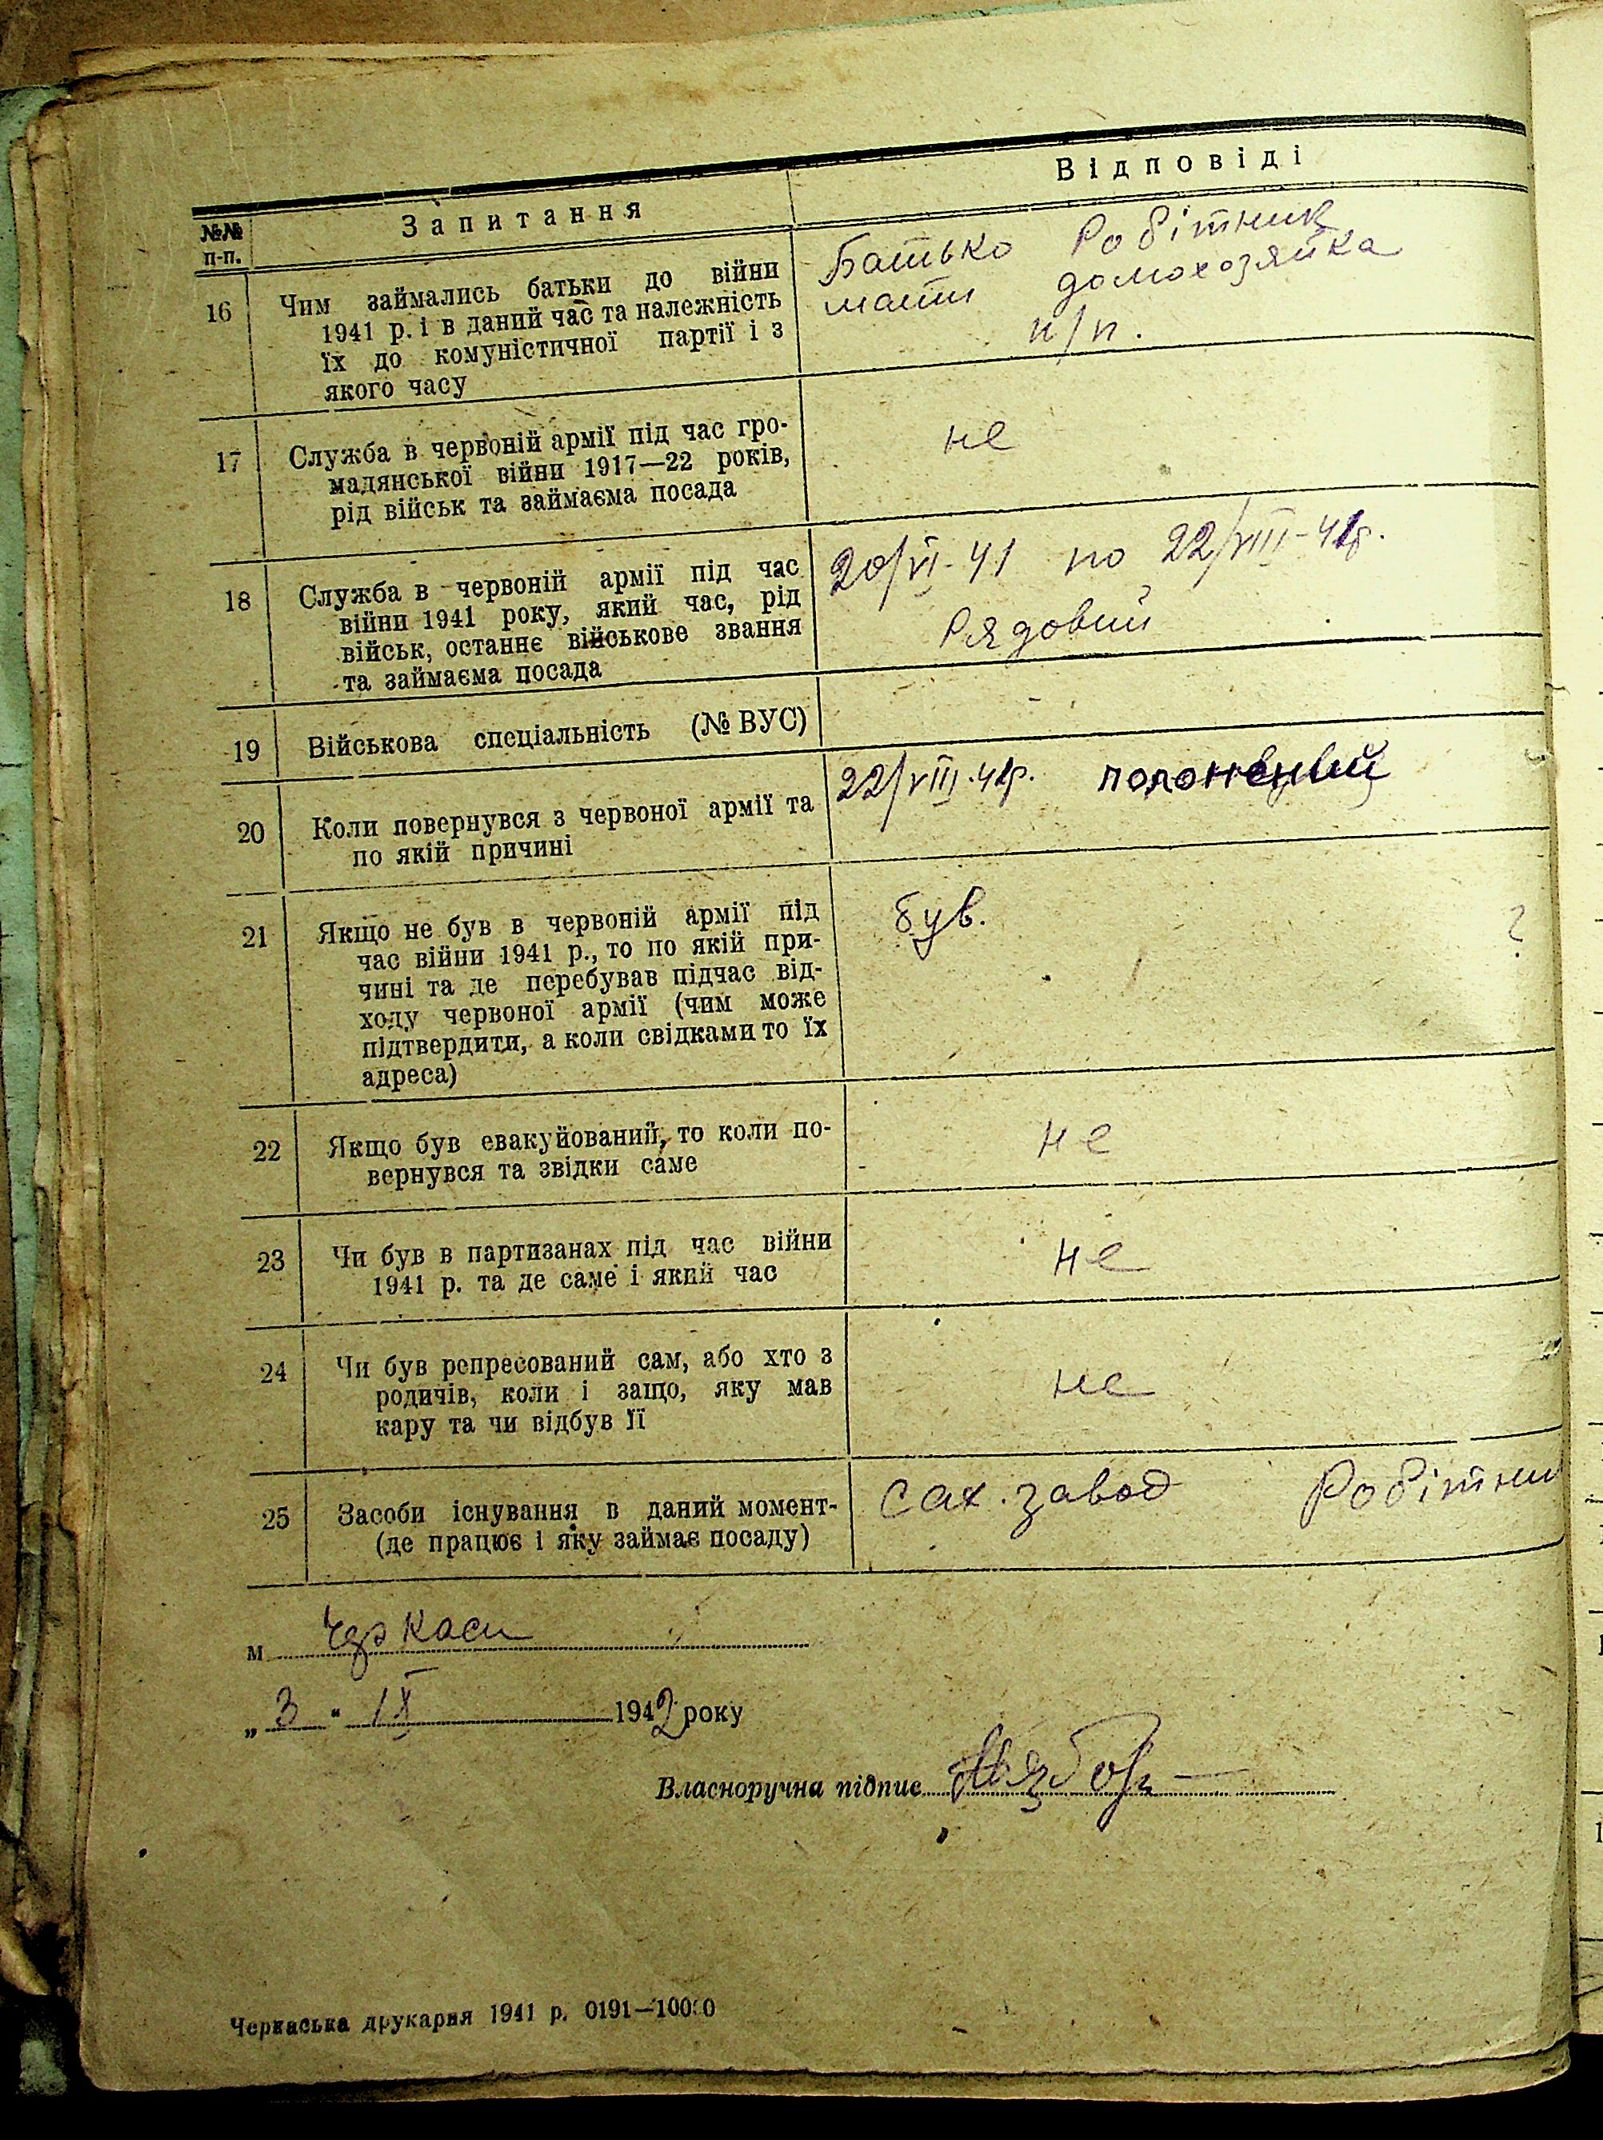 №№ п-п. Запитання Відповіді
16 Чим займались батьки до війни
1941 р. і в даний час та належність
їх до комуністичної партії і з
якого часу
Батько Робітник
мати домохозяйка
п/п.
17 Служба в червоній армії під час гро-
мадянської війни 1917—22 років,
рід військ та займаєма посада
не
18 Служба в червоній армії під час
війни 1941 року, який час, рід
військ, останнє військове звання
та займаєма посада
20/VI-41 по 22/VIII-41р.
Рядовий
19 Військова спеціальність (№ ВУС)
20 Коли повернувся з червоної армії та
по якій причині
22/VIII-41р. полонений
21 Якщо не був в червоній армії під
час війни 1941 р., то по якій при-
чині та де перебував підчас від-
ходу червоної армії (чим може
підтвердити, а коли свідками то їх
адреса)
був. ?
22 Якщо був евакуйований, то коли по-
вернувся та звідки саме
не
23 Чи був в партизанах під час війни
1941 р. та де саме і який час
не
24 Чи був репресований сам, або хто з
родичів, коли і защо, яку мав
кару та чи відбув її
не
25 Засоби існування в даний момент-
(де працює і яку займає посаду)
Сах. завод Робітни
м Черкаси
„3" IX 1942 року
Власноручна підпис
Черкаська друкарня 1941 р. 0191—10000